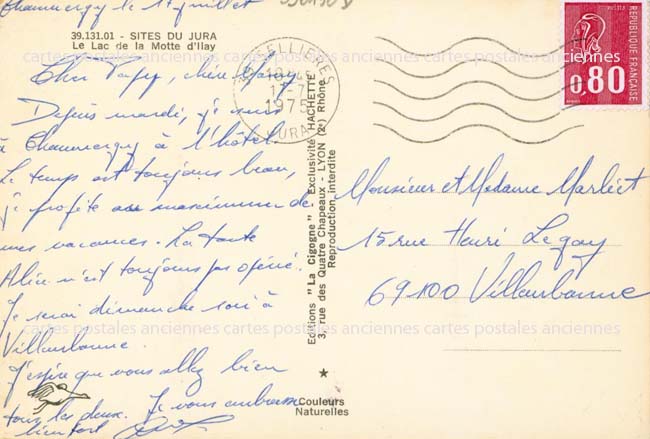 Chaumergy le 1er juillet
39.131.01 - SITES DU JURA
Le Lac de la Motte d'Ilay
Cher Papy, chère Mamy
Depuis mardi, je suis
à Chaumergy à l'hôtel.
Le temps est toujours beau,
je profite au maximum de
mes vacances. La tante
Alice n'est toujours pas opéré.
Je serai dimanche soir à
Villeurbanne.
J'espère que vous allez bien
tous les deux. Je vous embrasse
bientôt
SELLIÈRES
1975
JURA
Editions "La Cigogne" Exclusivité HACHETTE
3, rue des Quatre Chapeaux - LYON (2e) Rhône
Reproduction interdite
Couleurs
Naturelles
REPUBLIQUE FRANÇAISE
0,80
Monsieur et Madame Marliét
15 rue Henri Legay
69100 Villeurbanne
cartes postales anciennes cartes postales anciennes cartes postales anciennes